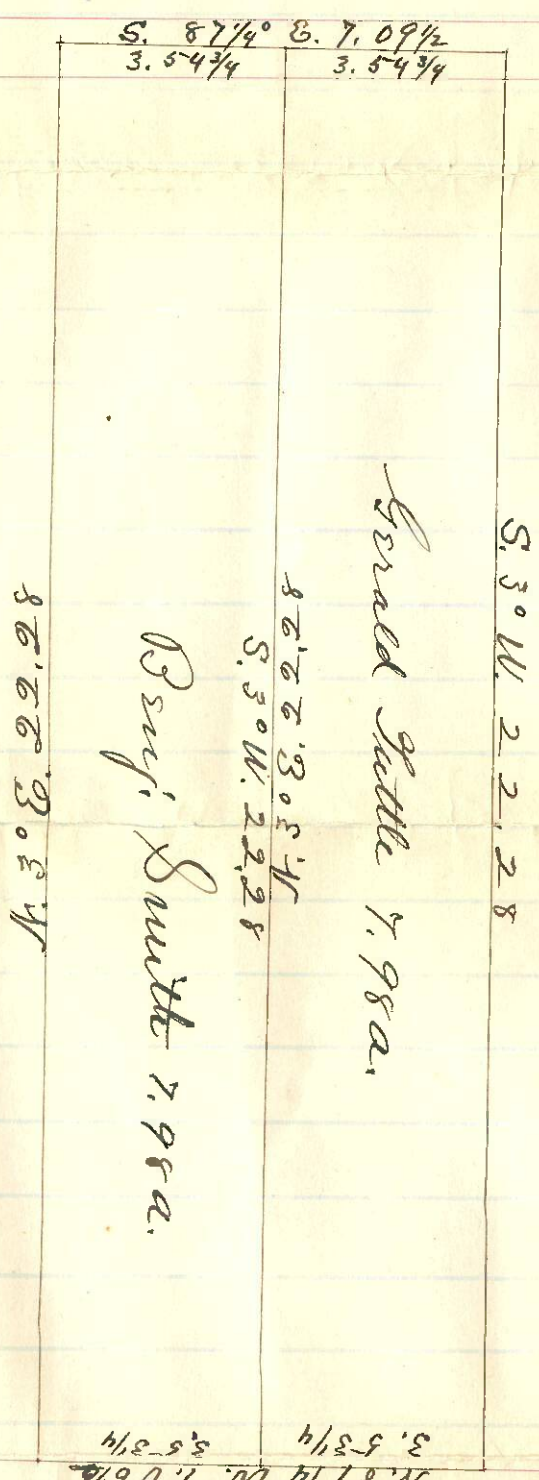 S. 87¼° E. 7.09½
3.54¾
3.54¾
S. 3° W. 22.28
Gerald Tuttle 7.98a.
N. 3° E. 22.28
S. 3° W. 22.28
Benj. Smith 7.98a.
N. 3° E. 22.28
3.53¼
3.53¼